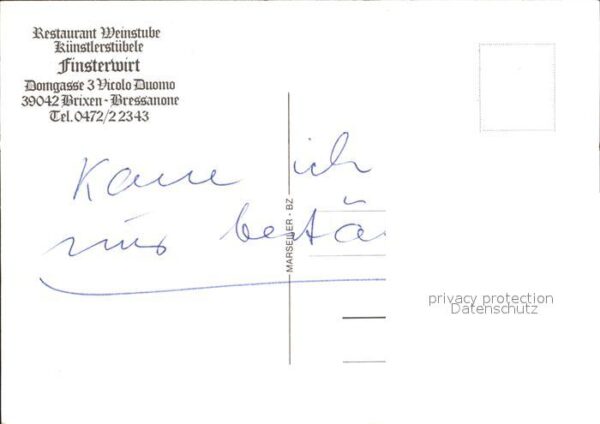 Restaurant Weinstube
Künstlerstübele
Finsterwirt
Domgasse 3 Vicolo Duomo
39042 Brixen - Bressanone
Tel. 0472/2 23 43
ich
MARSEILER - BZ
privacy protection
Datenschutz